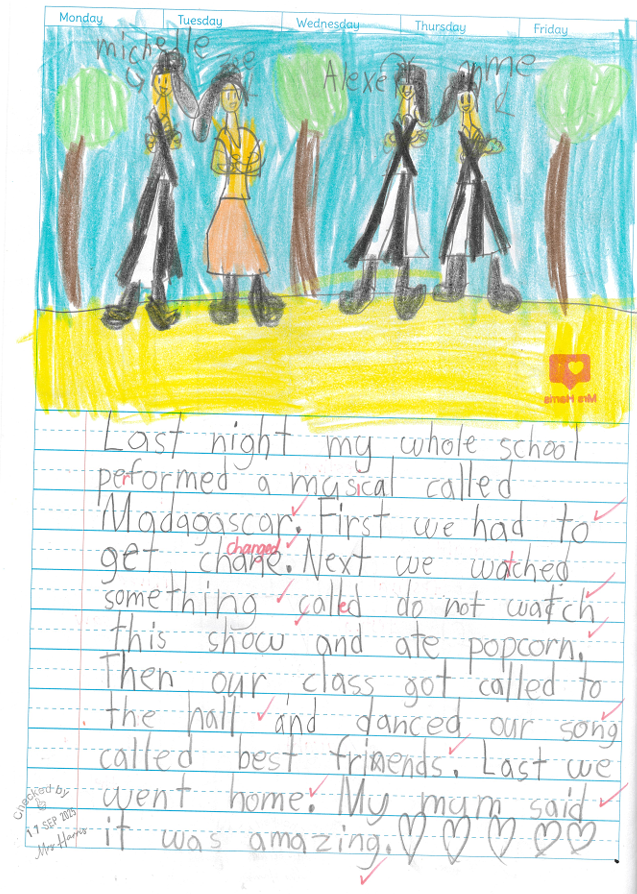 Monday Tuesday Wednesday Thursday Friday
michelle
Alexe
me
Mrs Harris
Last night my whole school
performed a musical called
Madagascar. First we had to
changed
get chane. Next we watched
something called do not watch
this show and ate popcorn.
Then our class got called to
the hall and danced our song
called best friends. Last we
went home. My mum said
it was amazing.
Checked by
17 SEP 2025
Mrs Harris